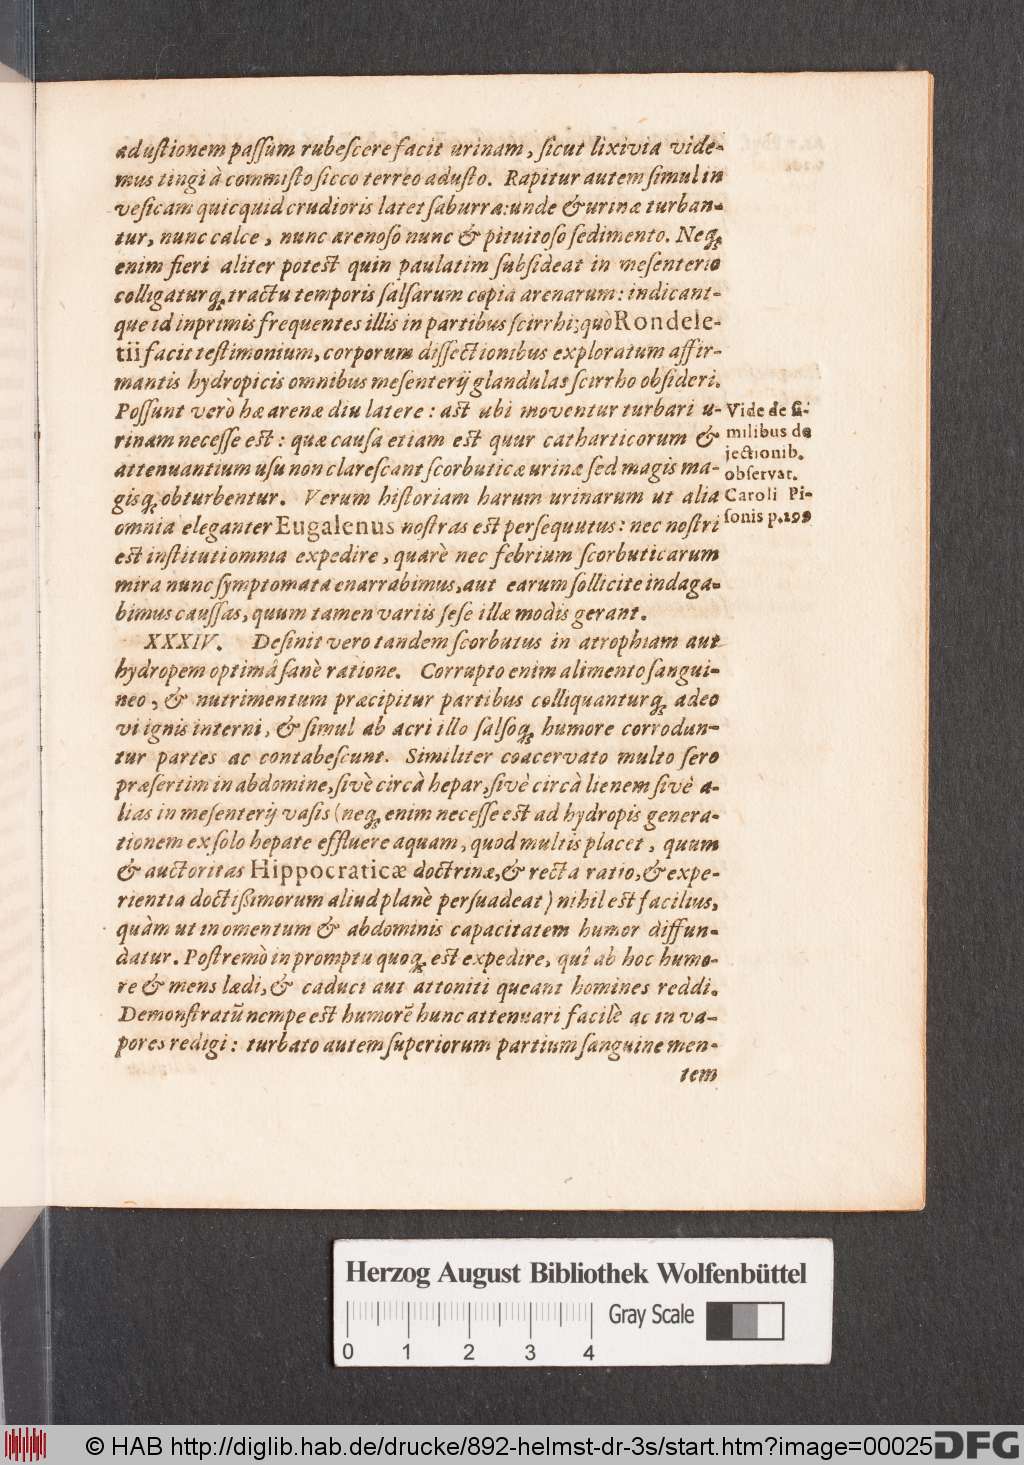 adustionem passùm rubescere facit urinam, sicut lixivia vide-
mus tingi à commisto sicco terreo adusto. Rapitur autem simul in
vesicam quicquid crudioris latet saburræ: unde & urinæ turban-
tur, nunc calce, nunc arenoso nunc & pituitoso sedimento. Neq́;
enim fieri aliter potest quin paulatim subsideat in mesenterio
colligaturq́; tractu temporis salsarum copia arenarum: indicant-
que id inprimis frequentes illis in partibus scirrhi; quò Rondele-
tii facit testimonium, corporum dissectionibus exploratum affir-
mantis hydropicis omnibus mesenterij glandulas scirrho obsideri.
Possunt verò hæ arenæ diu latere: ast ubi moventur turbari u-
rinam necesse est: quæ causa etiam est quur catharticorum &
attenuantium usu non clarescant scorbuticæ urinæ sed magis ma-
gisq́; obturbentur. Verum historiam harum urinarum ut alia
omnia eleganter Eugalenus nostras est persequutus: nec nostri
est instituti omnia expedire, quarè nec febrium scorbuticarum
mira nunc symptomata enarrabimus, aut earum sollicite indaga-
bimus caussas, quum tamen variis sese illæ modis gerant.
Vide de si-
milibus de
jectionib.
observat.
Caroli Pi-
sonis p. 199
XXXIV. Desinit vero tandem scorbutus in atrophiam aut
hydropem optimâ sanè ratione. Corrupto enim alimento sangui-
neo, & nutrimentum præcipitur partibus colliquanturq́; adeo
vi ignis interni, & simul ab acri illo salsoq́; humore corrodun-
tur partes ac contabescunt. Similiter coacervato multo sero
præsertim in abdomine, sivè circà hepar, sivè circà lienem sivè a-
lias in mesenterij vasis (neq́; enim necesse est ad hydropis genera-
tionem ex solo hepate effluere aquam, quod multis placet, quum
& auctoritas Hippocraticæ doctrinæ, & recta ratio, & expe-
rientia doctißimorum aliud planè persuadeat) nihil est facilius,
quàm ut in omentum & abdominis capacitatem humor diffun-
datur. Postremò in promptu quoq́; est expedire, quî ab hoc humo-
re & mens lædi, & caduci aut attoniti queant homines reddi.
Demonstratũ nempe est humorẽ hunc attenuari facilè ac in va-
pores redigi: turbato autem superiorum partium sanguine men-
tem
Herzog August Bibliothek Wolfenbüttel
0 1 2 3 4
Gray Scale
© HAB http://diglib.hab.de/drucke/892-helmst-dr-3s/start.htm?image=00025
DFG